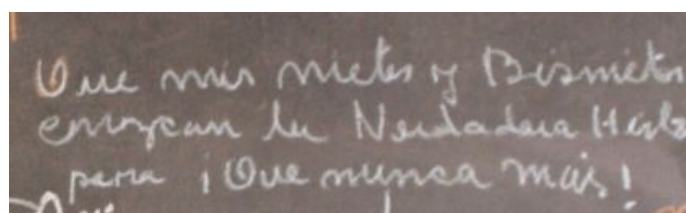 Que mis nietos y Bisnietos
conozcan la Verdadera Histo
para ¡Que nunca más!